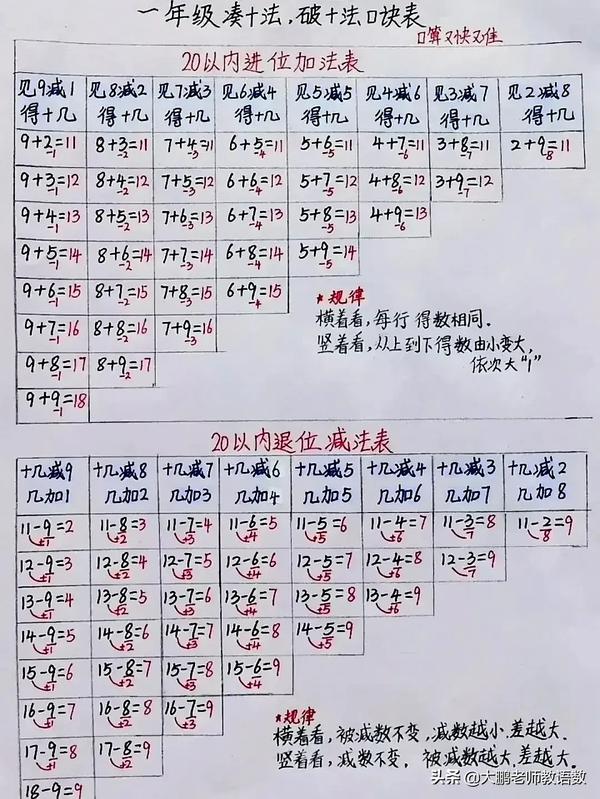 一年级凑十法,破十法口诀表
口算又快又准
20以内进位加法表
见9减1 见8减2 见7减3 见6减4 见5减5 见4减6 见3减7 见2减8
得十几 得十几 得十几 得十几 得十几 得十几 得十几 得十几
9+2=11 8+3=11 7+4=11 6+5=11 5+6=11 4+7=11 3+8=11 2+9=11
-1 -2 -3 -4 -5 -6 -7 8
9+3=12 8+4=12 7+5=12 6+6=12 5+7=12 4+8=12 3+9=12
-1 -2 -3 -4 -5 -6 -7
9+4=13 8+5=13 7+6=13 6+7=13 5+8=13 4+9=13
-1 -2 -3 -4 -5 -6
9+5=14 8+6=14 7+7=14 6+8=14 5+9=14
-1 -2 -3 -4 -5
9+6=15 8+7=15 7+8=15 6+9=15
-1 -2 -3 -4
9+7=16 8+8=16 7+9=16
-1 -2 -3
9+8=17 8+9=17
-1 -2
9+9=18
-1
*规律
横着看,每行得数相同.
竖着看,从上到下得数由小变大,
依次大“1”
20以内退位减法表
十几减9 十几减8 十几减7 十几减6 十几减5 十几减4 十几减3 十几减2
几加1 几加2 几加3 几加4 几加5 几加6 几加7 几加8
11-9=2 11-8=3 11-7=4 11-6=5 11-5=6 11-4=7 11-3=8 11-2=9
+1 +2 +3 +4 +5 +6 7 8
12-9=3 12-8=4 12-7=5 12-6=6 12-5=7 12-4=8 12-3=9
+1 +2 +3 +4 +5 +6 7
13-9=4 13-8=5 13-7=6 13-6=7 13-5=8 13-4=9
+1 +2 +3 +4 +5 +6
14-9=5 14-8=6 14-7=7 14-6=8 14-5=9
+1 +2 +3 +4 +5
15-9=6 15-8=7 15-7=8 15-6=9
+1 +2 +3 +4
16-9=7 16-8=8 16-7=9
+1 +2 +3
17-9=8 17-8=9
+1 +2
18-9=9
*规律
横着看,被减数不变,减数越小,差越大.
竖着看,减数不变,被减数越大,差越大.
头条 @大鹏老师教语数